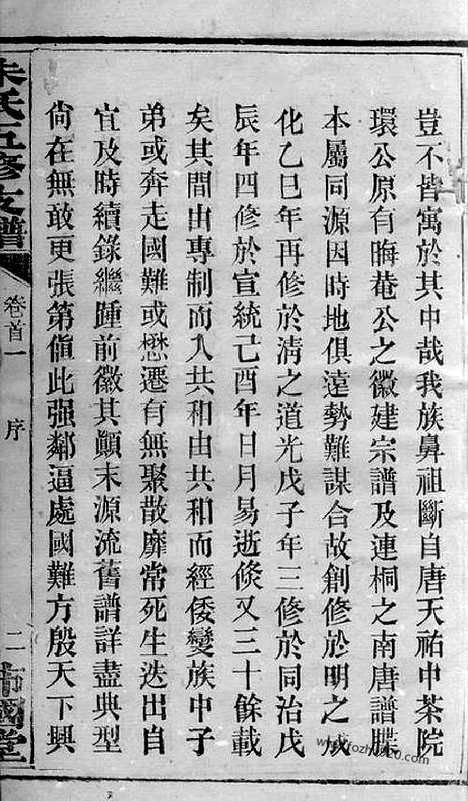 豈不皆寓於其中哉我族鼻祖斷自唐天祐中茶院
環公原有晦菴公之徽建宗譜及連桐之南唐譜牒
本屬同源因時地俱遠勢難謀合故創修於明之成
化乙巳年再修於清之道光戊子年三修於同治戊
辰年四修於宣統己酉年日月易逝倐又三十餘載
矣其間由專制而入共和由共和而經倭變族中子
弟或奔走國難或懋遷有無聚散靡常死生迭出自
宜及時續錄繼踵前徽其顚末源流舊譜詳盡典型
尙在無敢更張第値此强鄰逼處國難方殷天下興
朱氏五修支譜
卷首一
序
二